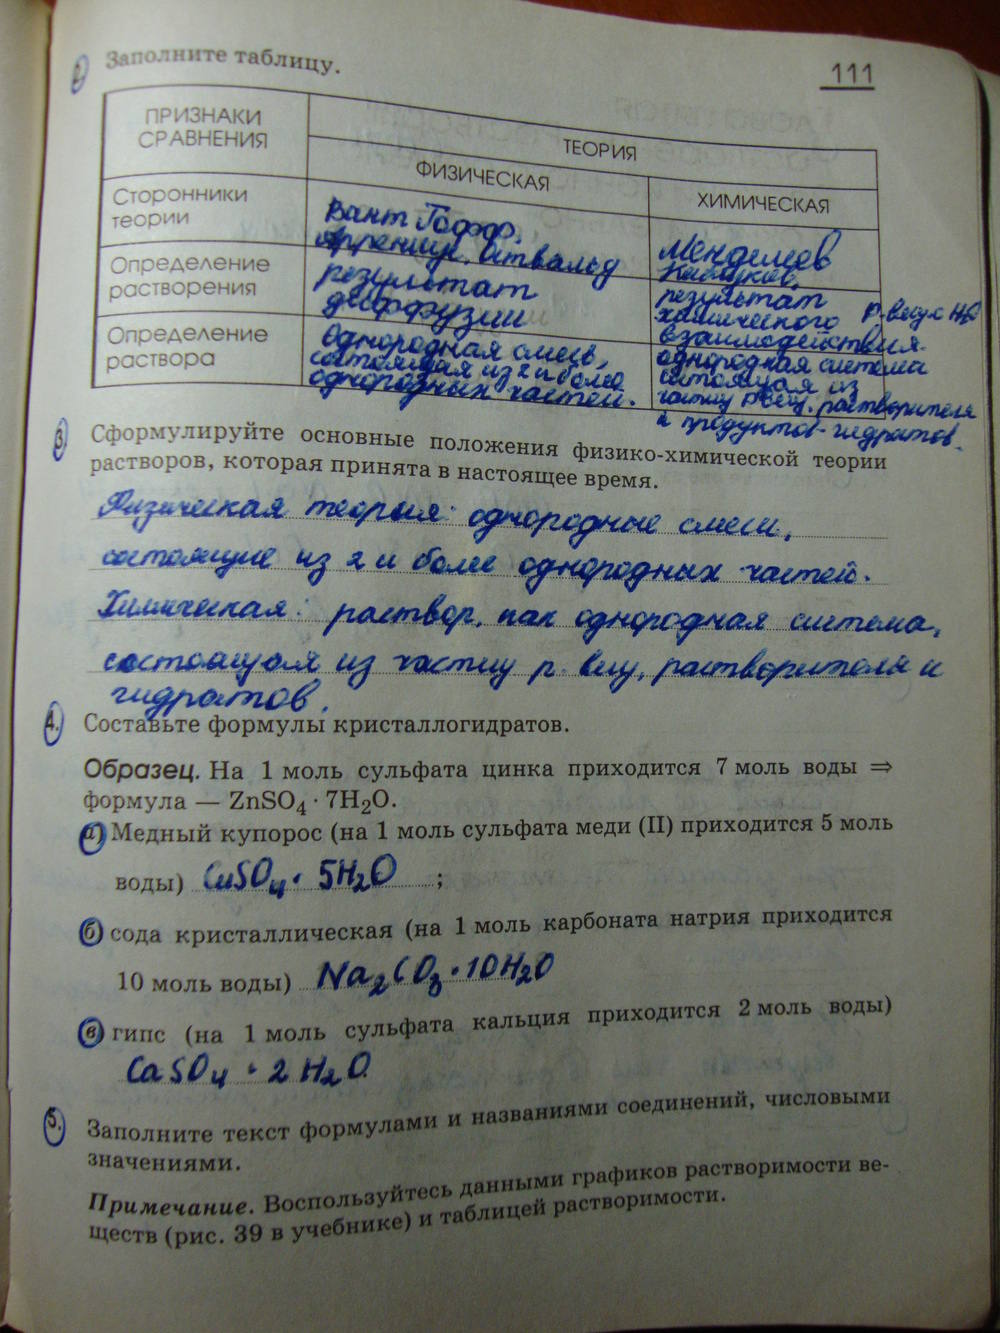 2. Заполните таблицу.
111
ПРИЗНАКИ СРАВНЕНИЯ
ТЕОРИЯ
ФИЗИЧЕСКАЯ
ХИМИЧЕСКАЯ
Сторонники теории
Вант Гофф,
Аррениус, Оствальд
Менделеев
Каблуков,
Определение растворения
результат
диффузии
результат
химического р. вещ. с H2O
взаимодействия.
Определение раствора
однородная смесь,
состоящая из 2 и более
однородных частей.
однородная система
состоящая из
частиц р. вещ. растворителя
и продуктов-гидратов.
3. Сформулируйте основные положения физико-химической теории
растворов, которая принята в настоящее время.
Физическая теория: однородные смеси,
состоящие из 2 и более однородных частей.
Химическая: раствор, как однородная система,
состоящая из частиц р. вещ, растворителя и
гидратов.
4. Составьте формулы кристаллогидратов.
Образец. На 1 моль сульфата цинка приходится 7 моль воды ⇒
формула — ZnSO₄ · 7H₂O.
а) Медный купорос (на 1 моль сульфата меди (II) приходится 5 моль
воды) CuSO₄ · 5H₂O ;
б) сода кристаллическая (на 1 моль карбоната натрия приходится
10 моль воды) Na₂CO₃ · 10H₂O
в) гипс (на 1 моль сульфата кальция приходится 2 моль воды)
CaSO₄ · 2 H₂O.
5. Заполните текст формулами и названиями соединений, числовыми
значениями.
Примечание. Воспользуйтесь данными графиков растворимости ве-
ществ (рис. 39 в учебнике) и таблицей растворимости.